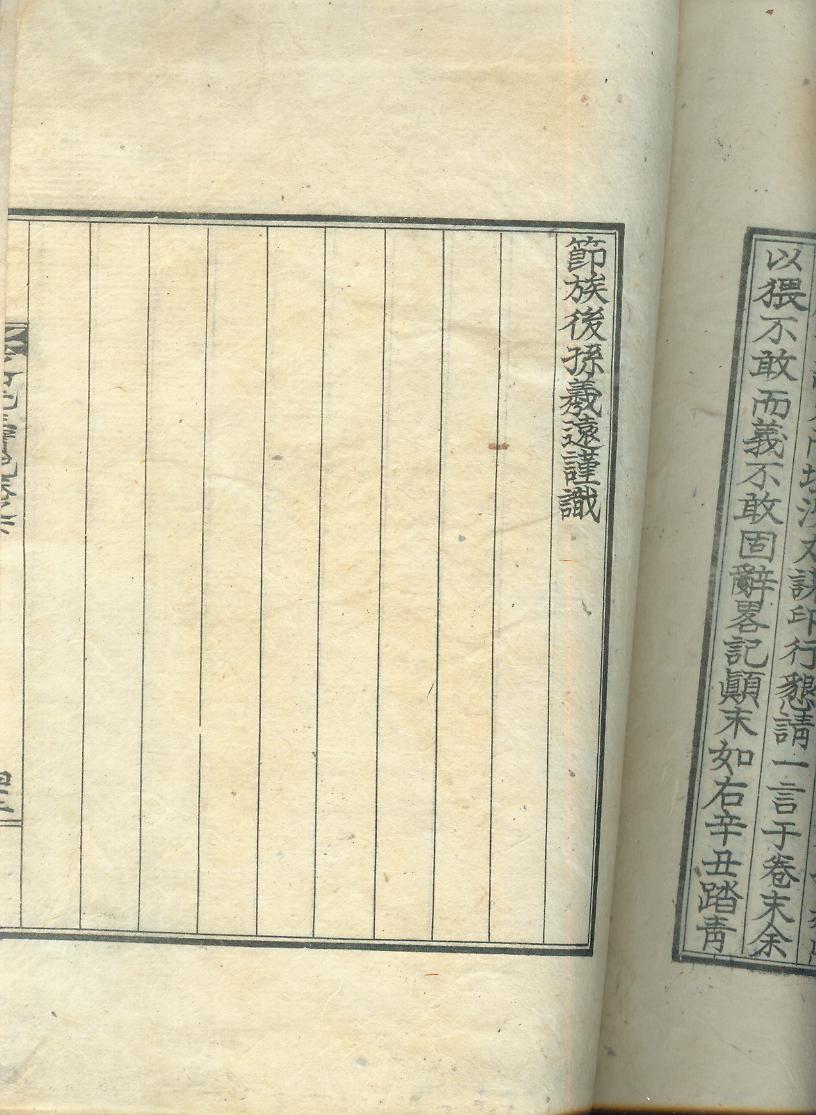 文謀印行懇請一言于卷末余
以猥不敢而義不敢固辭畧記顛末如右辛丑踏靑
節族後孫羲遠謹識